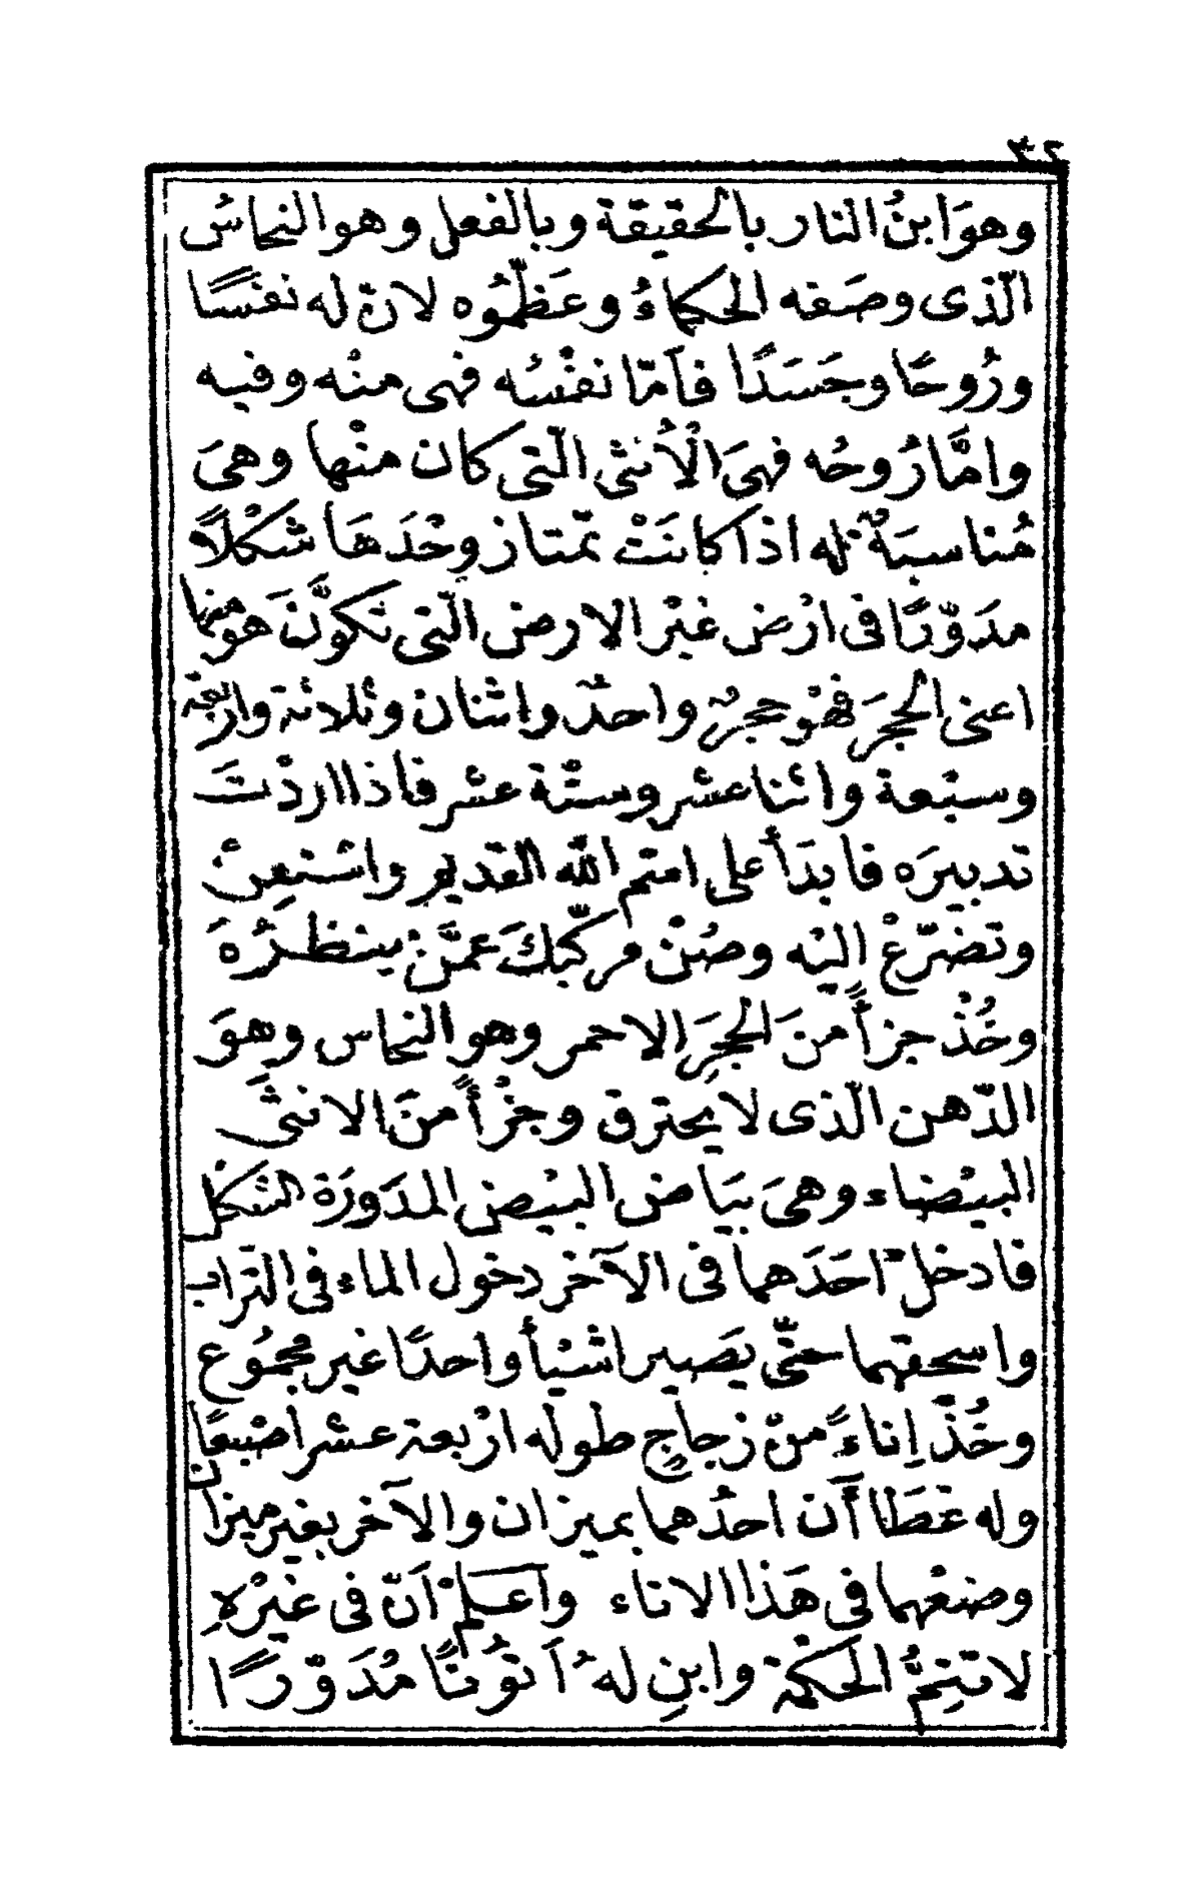 ٣٢
وهوَ ابنُ النار بالحقيقة وبالفعل وهو النحاسُ
الّذى وصَفه الحكماءُ وعَظّمُوه لانّ له نفسًا
ورُوحًا وجَسَدًا فاَمّا نفْسُه فهى منْه وفيه
وامَّا رُوحُه فهىَ الْأُنثى الّتى كان منْها وهىَ
مُناسبَةٌ له اذا كانَتْ تمتاز وحْدَهَا شكْلًا
مدَوّرًا فى ارْض غيْر الارض الّتى تكوَّنَ هو منها
اعنى الحجرَ فهْو حجرٌ واحدٌ واثنان وثلاثة واربعة
وسبْعة واثنا عشر وستّة عشر فاذا اردْتَ
تدبيرَه فابدَأ على اسم الله القديم واسْتعِنْ
وتضرّعْ اليْه وصُنْ مركّبكَ عمَّنْ ينظرُهُ
وخُذْ جزأً منَ الحجَرِ الاحمر وهو النحاس وهوَ
الدّهن الّذى لا يحترق وجزْأً منَ الانثَى
البيْضاء وهىَ بيَاض البيْض المدَورَة الشكْل
فادخلْ احَدَهما فى الآخر دخول الماء فى التراب
واسحقهما حتّى يصَير اشيْأ واحدًا غير مجمُوع
وخُذْ إناءً منْ زجاجٍ طوله ارْبعة عشر اصْبعًا
وله غطَاأَن احدُهما بميزان والآخر بغير ميزان
وضعْهما فى هَذا الاناء واَعلمْ اَنّ فى غيْرهِ
لا تتِمُّ الحكْمة وابنِ لهُ اَتوُنًا مُدَوّرًا